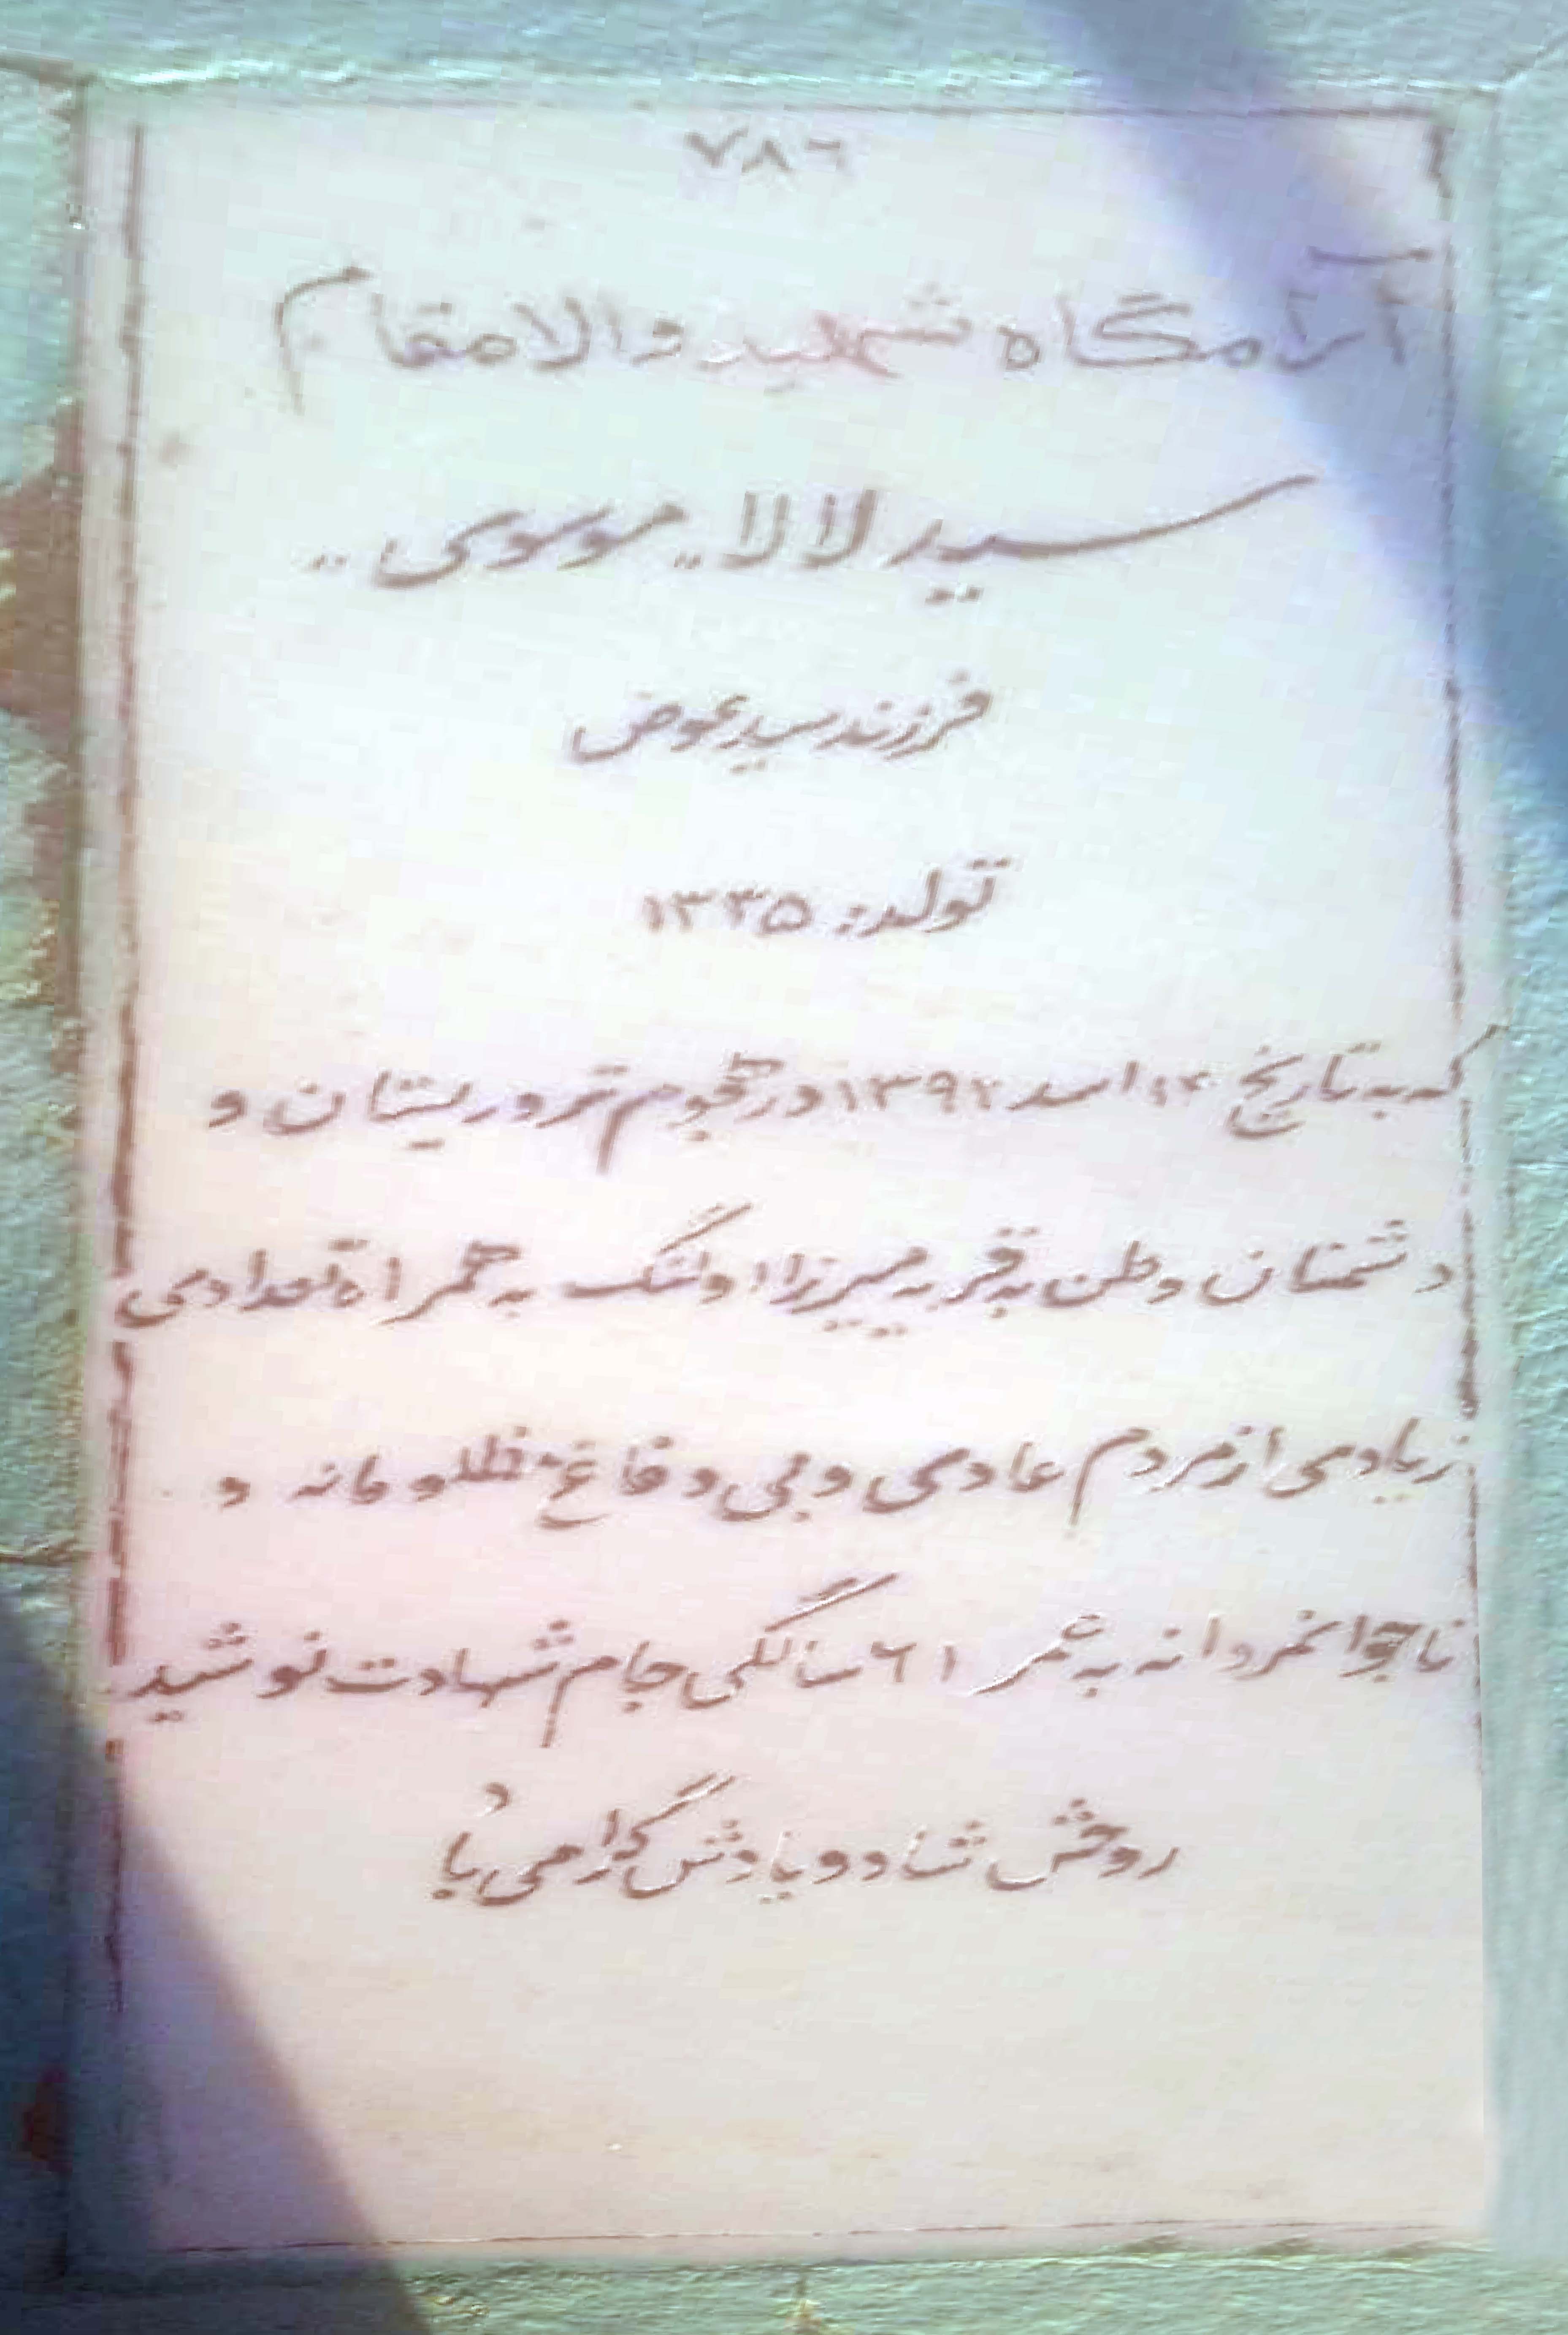 ٧٨٦
آرامگاه شهید والامقام
سید لالا موسوی
فرزند سید عوض
تولد: ۱۳۳۵
که به تاریخ اسد در هجوم تروریستان و
دشمنان وطن به قریه میرزا اولنگ به همراه تعدادی
زیادی از مردم عادی و بی دفاغ مظلومانه و
ناجوانمردانه به عمر ٦١ سالگی جام شهادت نوشید
روحش شاد و یادش گرامی باد